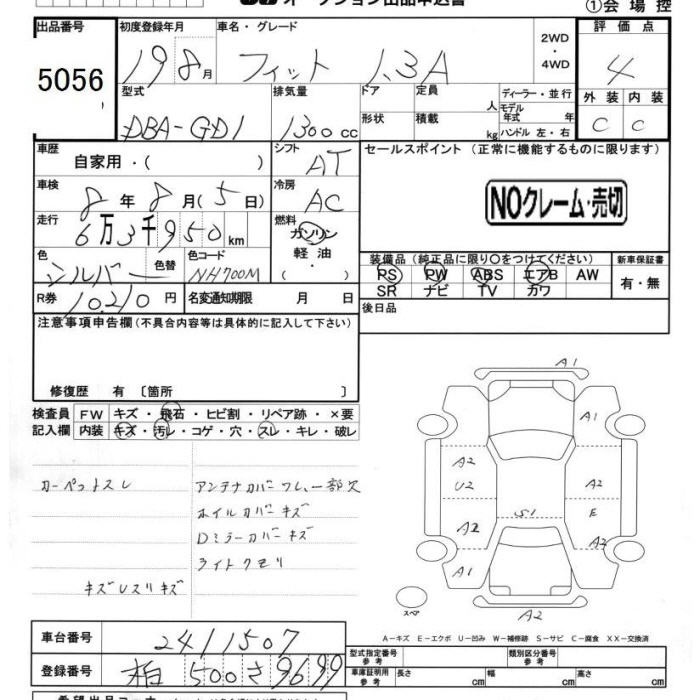 オークション出品申込書 ①会場控
出品番号 初度登録年月 車名・グレード 2WD・4WD 評価点
5056 19 8月 フィット 1.3A 4
型式 排気量 ドア 定員 人 ディーラー・並行 外装 内装
DBA-GD1 1300cc 形状 積載 kg モデル年式 年 ハンドル 左・右 C C
車歴 自家用・( ) シフト AT セールスポイント (正常に機能するものに限ります)
車検 8年 8月(5日) 冷房 AC NOクレーム・売切
走行 6万3千950km 燃料 ガソリン 軽油・( )
色 シルバー 色替 色コード NH700M
装備品 (純正品に限り○をつけてください) 新車保証書
PS PW ABS エアB AW 有・無
SR ナビ TV カワ
R券 10,210円 名変通知期限 月 日 後日品
注意事項申告欄(不具合内容等は具体的に記入して下さい)
修復歴 有〔箇所 〕
検査員 FW キズ・飛石・ヒビ割・リペア跡・×要
記入欄 内装 キズ・汚レ・コゲ・穴・スレ・キレ・破レ
カーペットスレ アンテナカバーワレ、一部欠
ホイルカバーキズ
Dミラーカバーキズ
ライトクモリ
キズUスリキズ
A1
A1
A2 A2
U2 E
S1
A2 A2
A1
スペア A2
A-キズ E-エクボ U-凹み W-補修跡 S-サビ C-腐食 XX-交換済
車台番号 2411507
登録番号 柏 500 さ 9699
型式指定番号 参考 類別区分番号 参考
車庫証明用 参考 長さ cm 幅 cm 高さ cm
希望出品コーナー